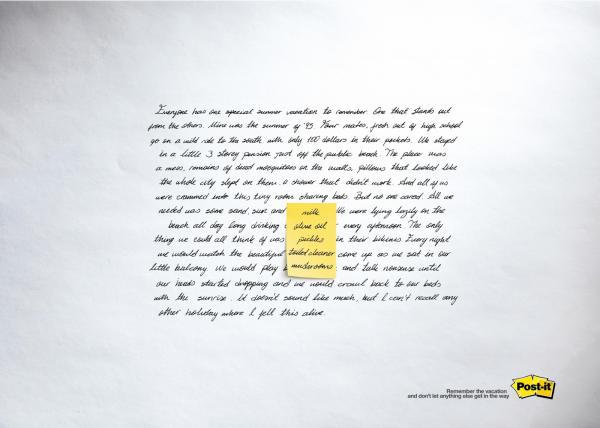 Everyone has one special summer vacation to remember. One that stands out
from the others. Mine was the summer of '95. Four mates, fresh out of high school
go on a wild ride to the south with only 100 dollars in their pockets. We stayed
in a little 3 storey pension just off the public beach. The place was
a mess, remains of dead mosquitoes on the walls, pillows that looked like
the whole city slept on them, a shower that didn't work. And all of us
were crammed into this tiny room sharing beds. But no one cared. All we
needed was some sand, sun and We were lying lazily on the
beach all day long drinking every afternoon. The only
thing we could all think of was in their bikinis. Every night
we would watch the beautiful come up as we sat in our
little balcony. We would play and talk nonsense until
our heads started dropping and we would crawl back to our beds
with the sunrise. It doesn't sound like much, but I can't recall any
other holiday where I felt this alive.
milk
olive oil
pickles
toilet cleaner
mushrooms
Remember the vacation
and don't let anything else get in the way
Post-it